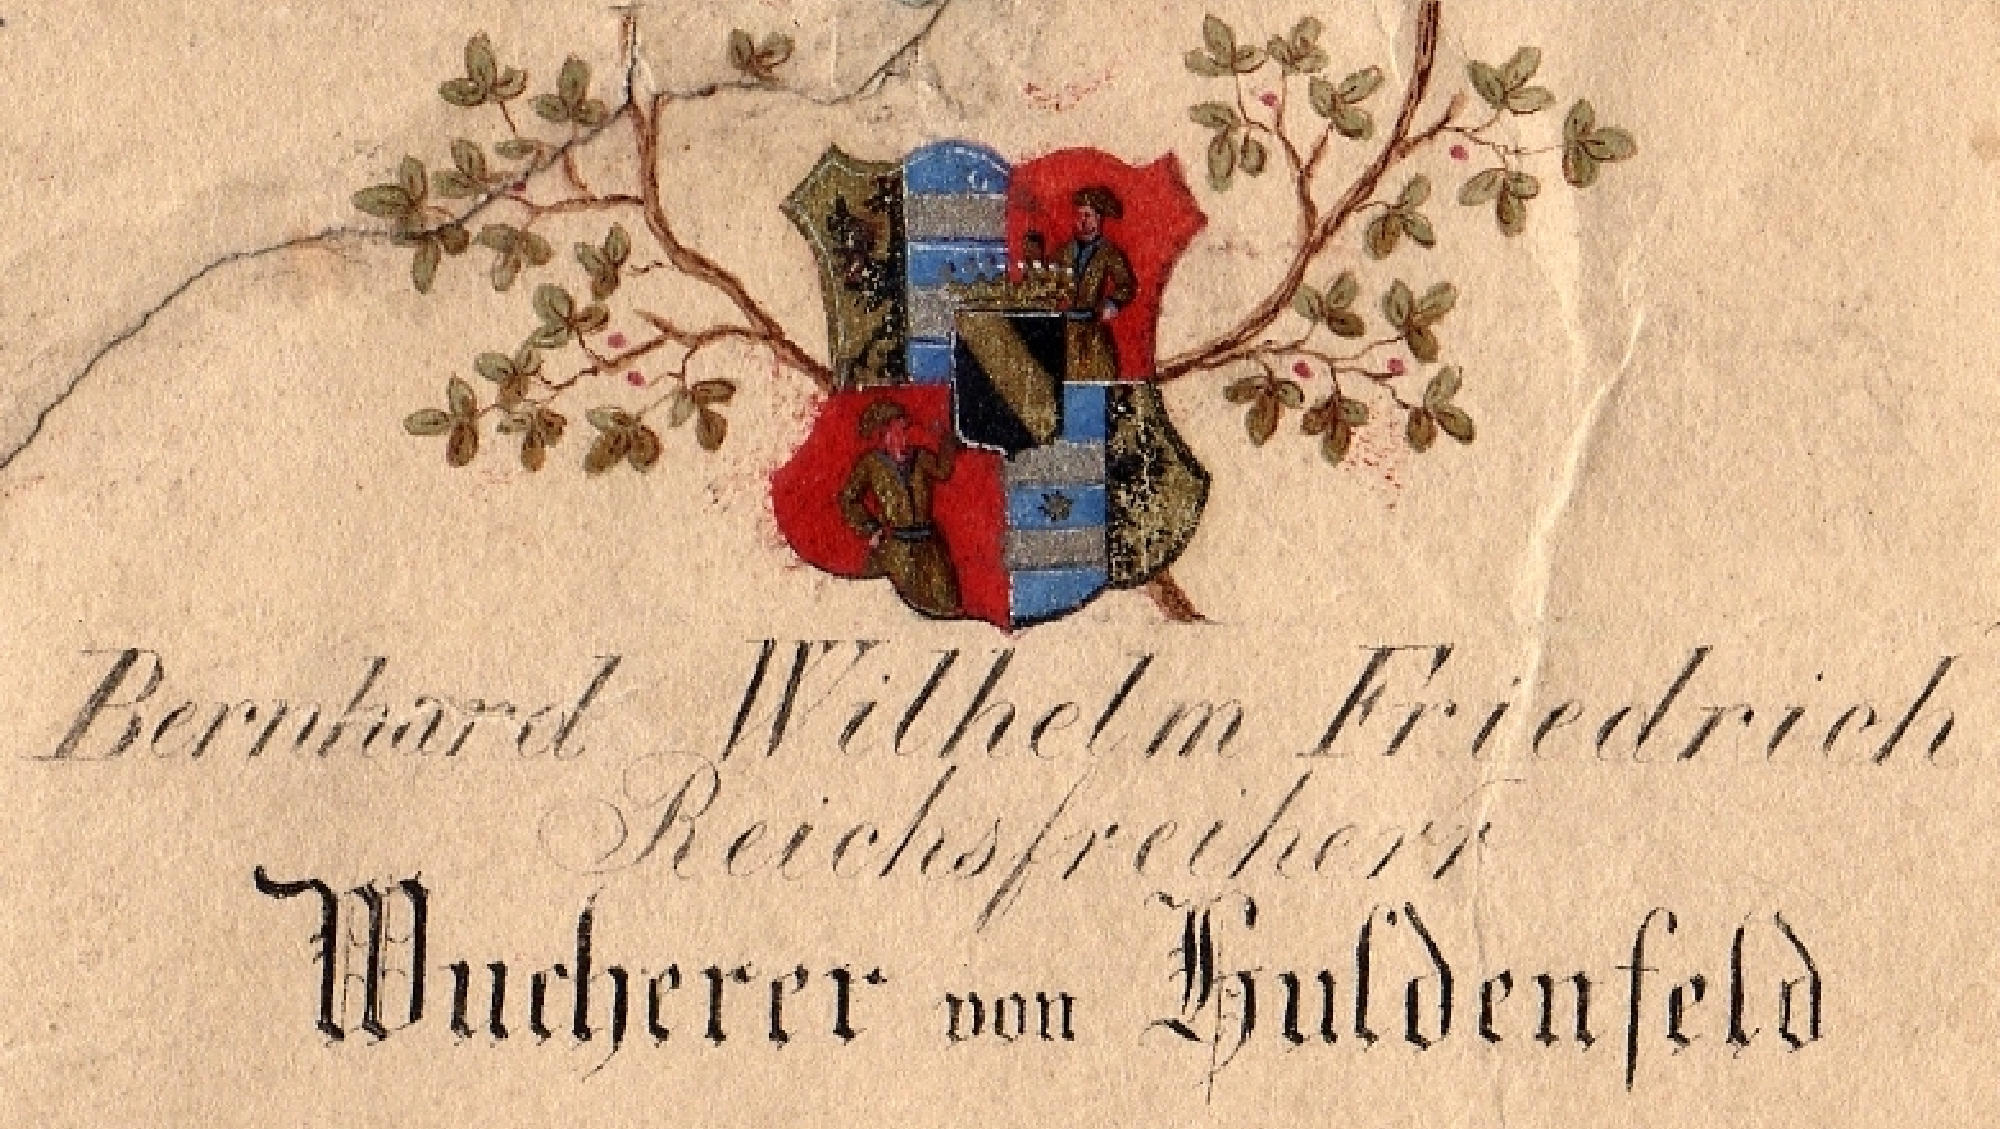 Bernhard Wilhelm Friedrich
Reichsfreiherr
Wucherer von Huldenfeld